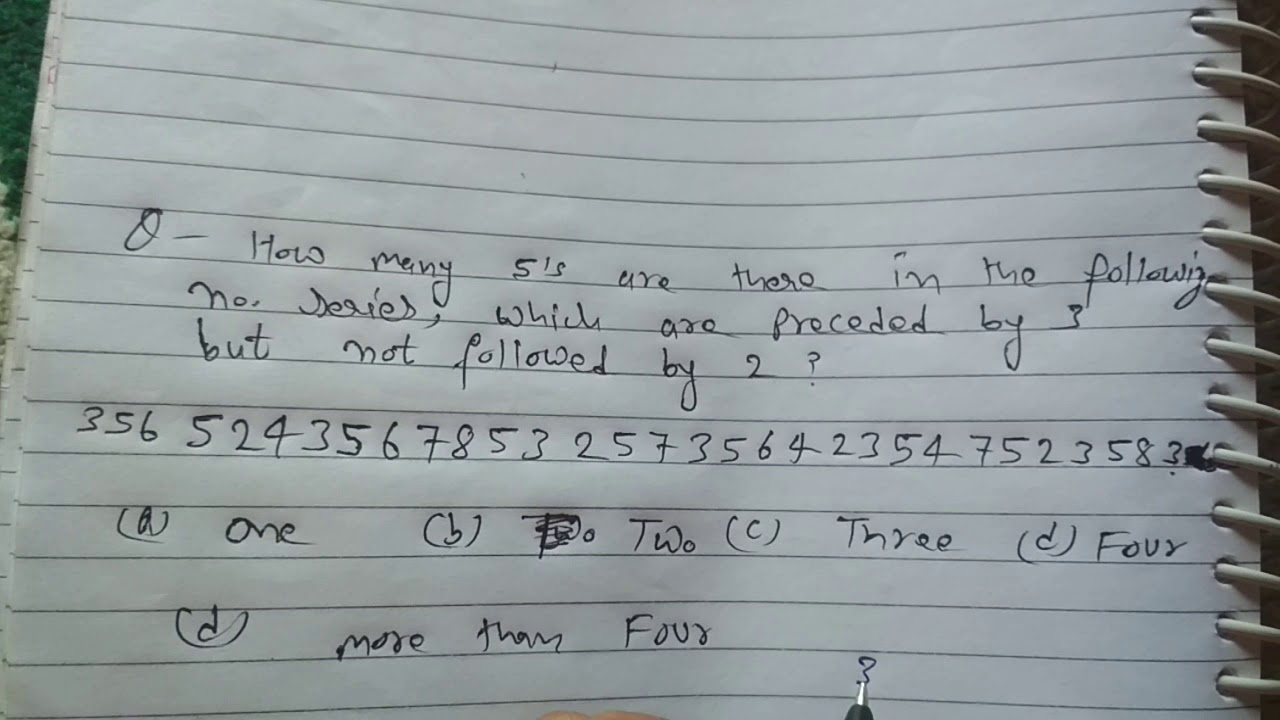 Q - How many 5's are there in the following
no. series, which are preceded by 3
but not followed by 2 ?
356 5 2 4 3 5 6 7 8 5 3 2 5 7 3 5 6 4 2 3 5 4 7 5 2 3 5 8 3
(a) one (b) Two (c) Three (d) Four
(d) more than Four
3